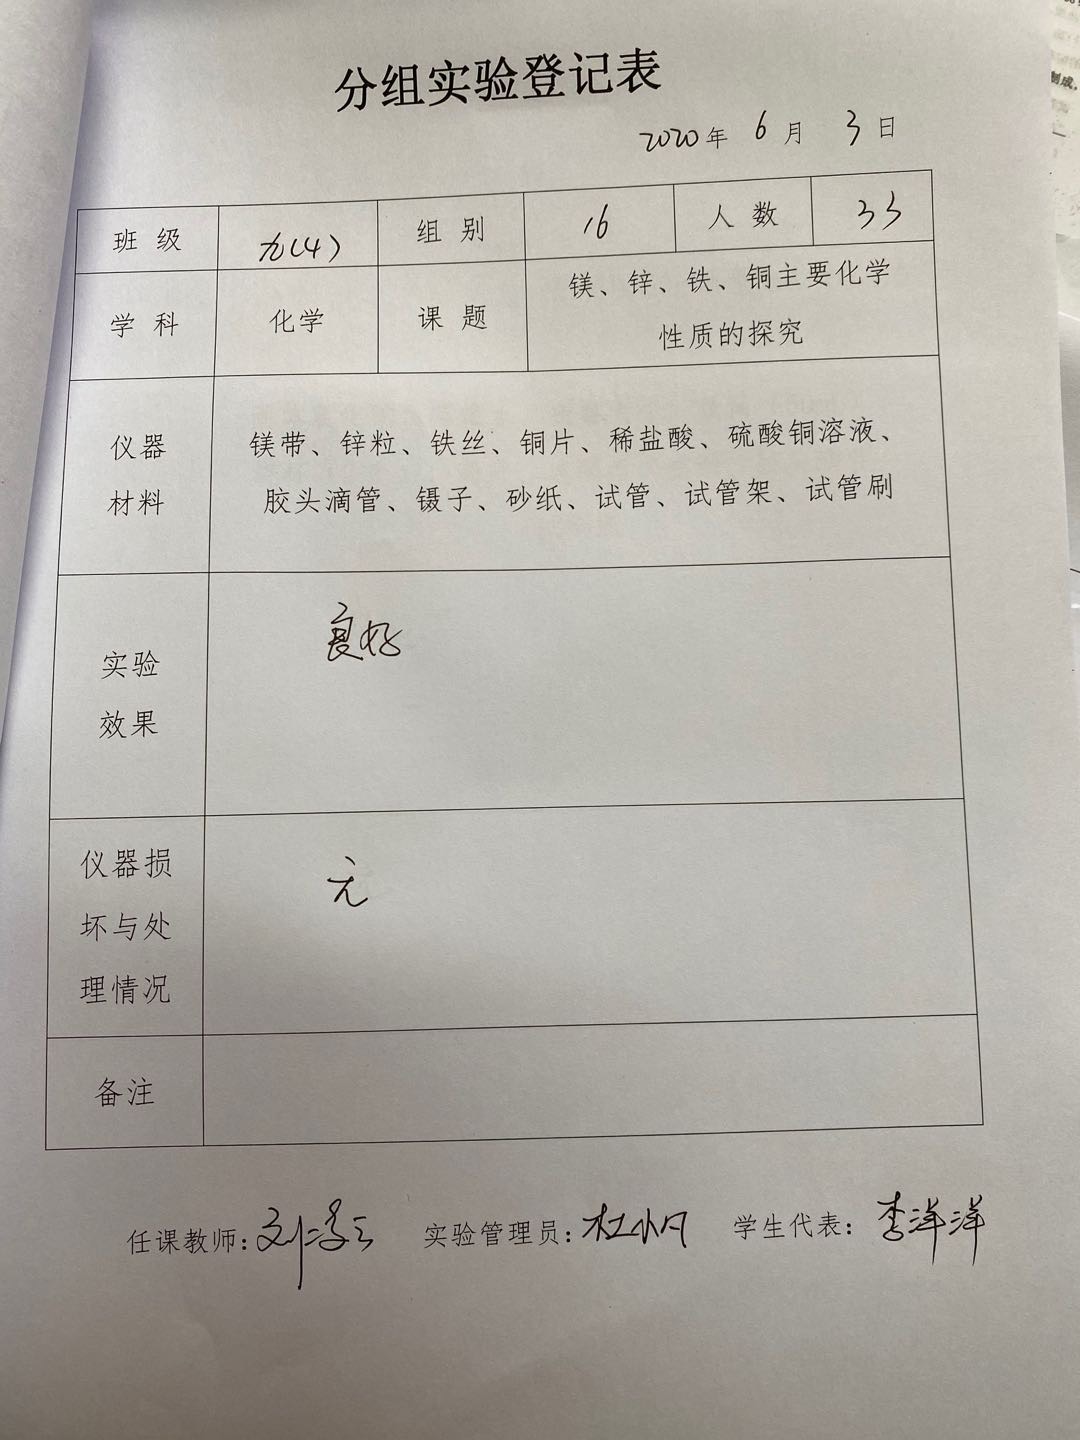 分组实验登记表
2020年 6月 3日
班级 九(4) 组别 16 人数 33
学科 化学 课题 镁、锌、铁、铜主要化学
性质的探究
仪器 镁带、锌粒、铁丝、铜片、稀盐酸、硫酸铜溶液、
材料 胶头滴管、镊子、砂纸、试管、试管架、试管刷
实验 良好
效果
仪器损 无
坏与处
理情况
备注
任课教师: 刘凌云 实验管理员: 杜小凡 学生代表: 李洋洋
制成,